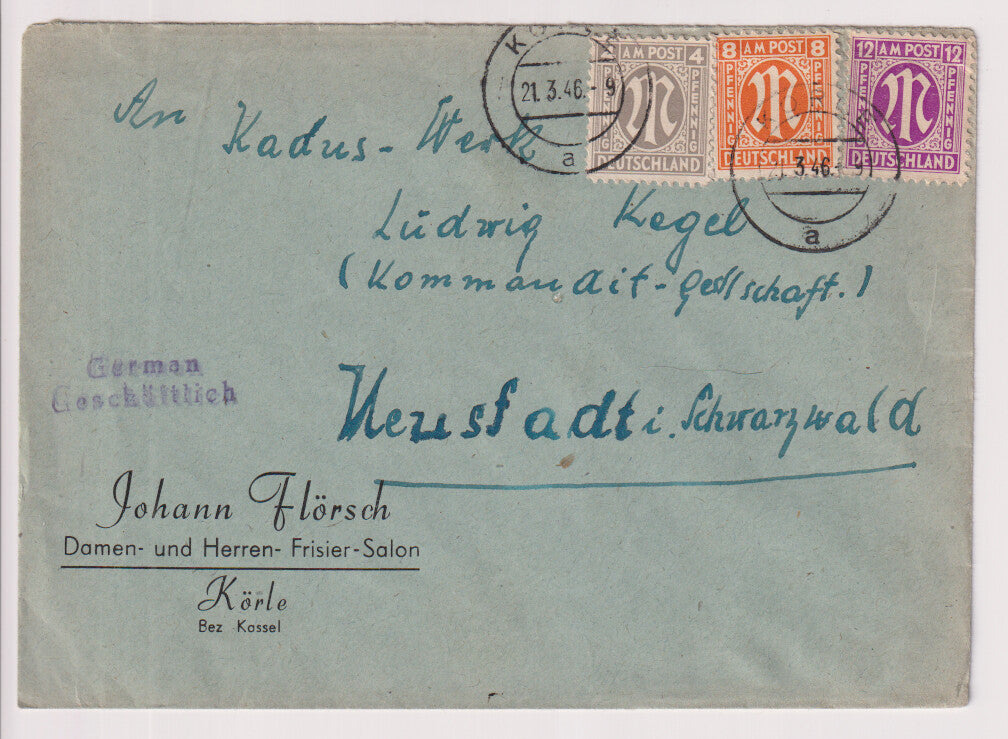 4 AM POST 4
PFENNIG PFENNIG
DEUTSCHLAND
8 AM POST 8
PFENNIG PFENNIG
DEUTSCHLAND
12 AM POST 12
PFENNIG PFENNIG
DEUTSCHLAND
21.3.46.-9
a
21.3.46.-9
a
An
Kadus-Werk
Ludwig Kegel
(Kommandit-Gesllschaft.)
Neustadt i. Schwarzwald
German
Geschäftlich
Johann Flörsch
Damen- und Herren- Frisier-Salon
Körle
Bez Kassel